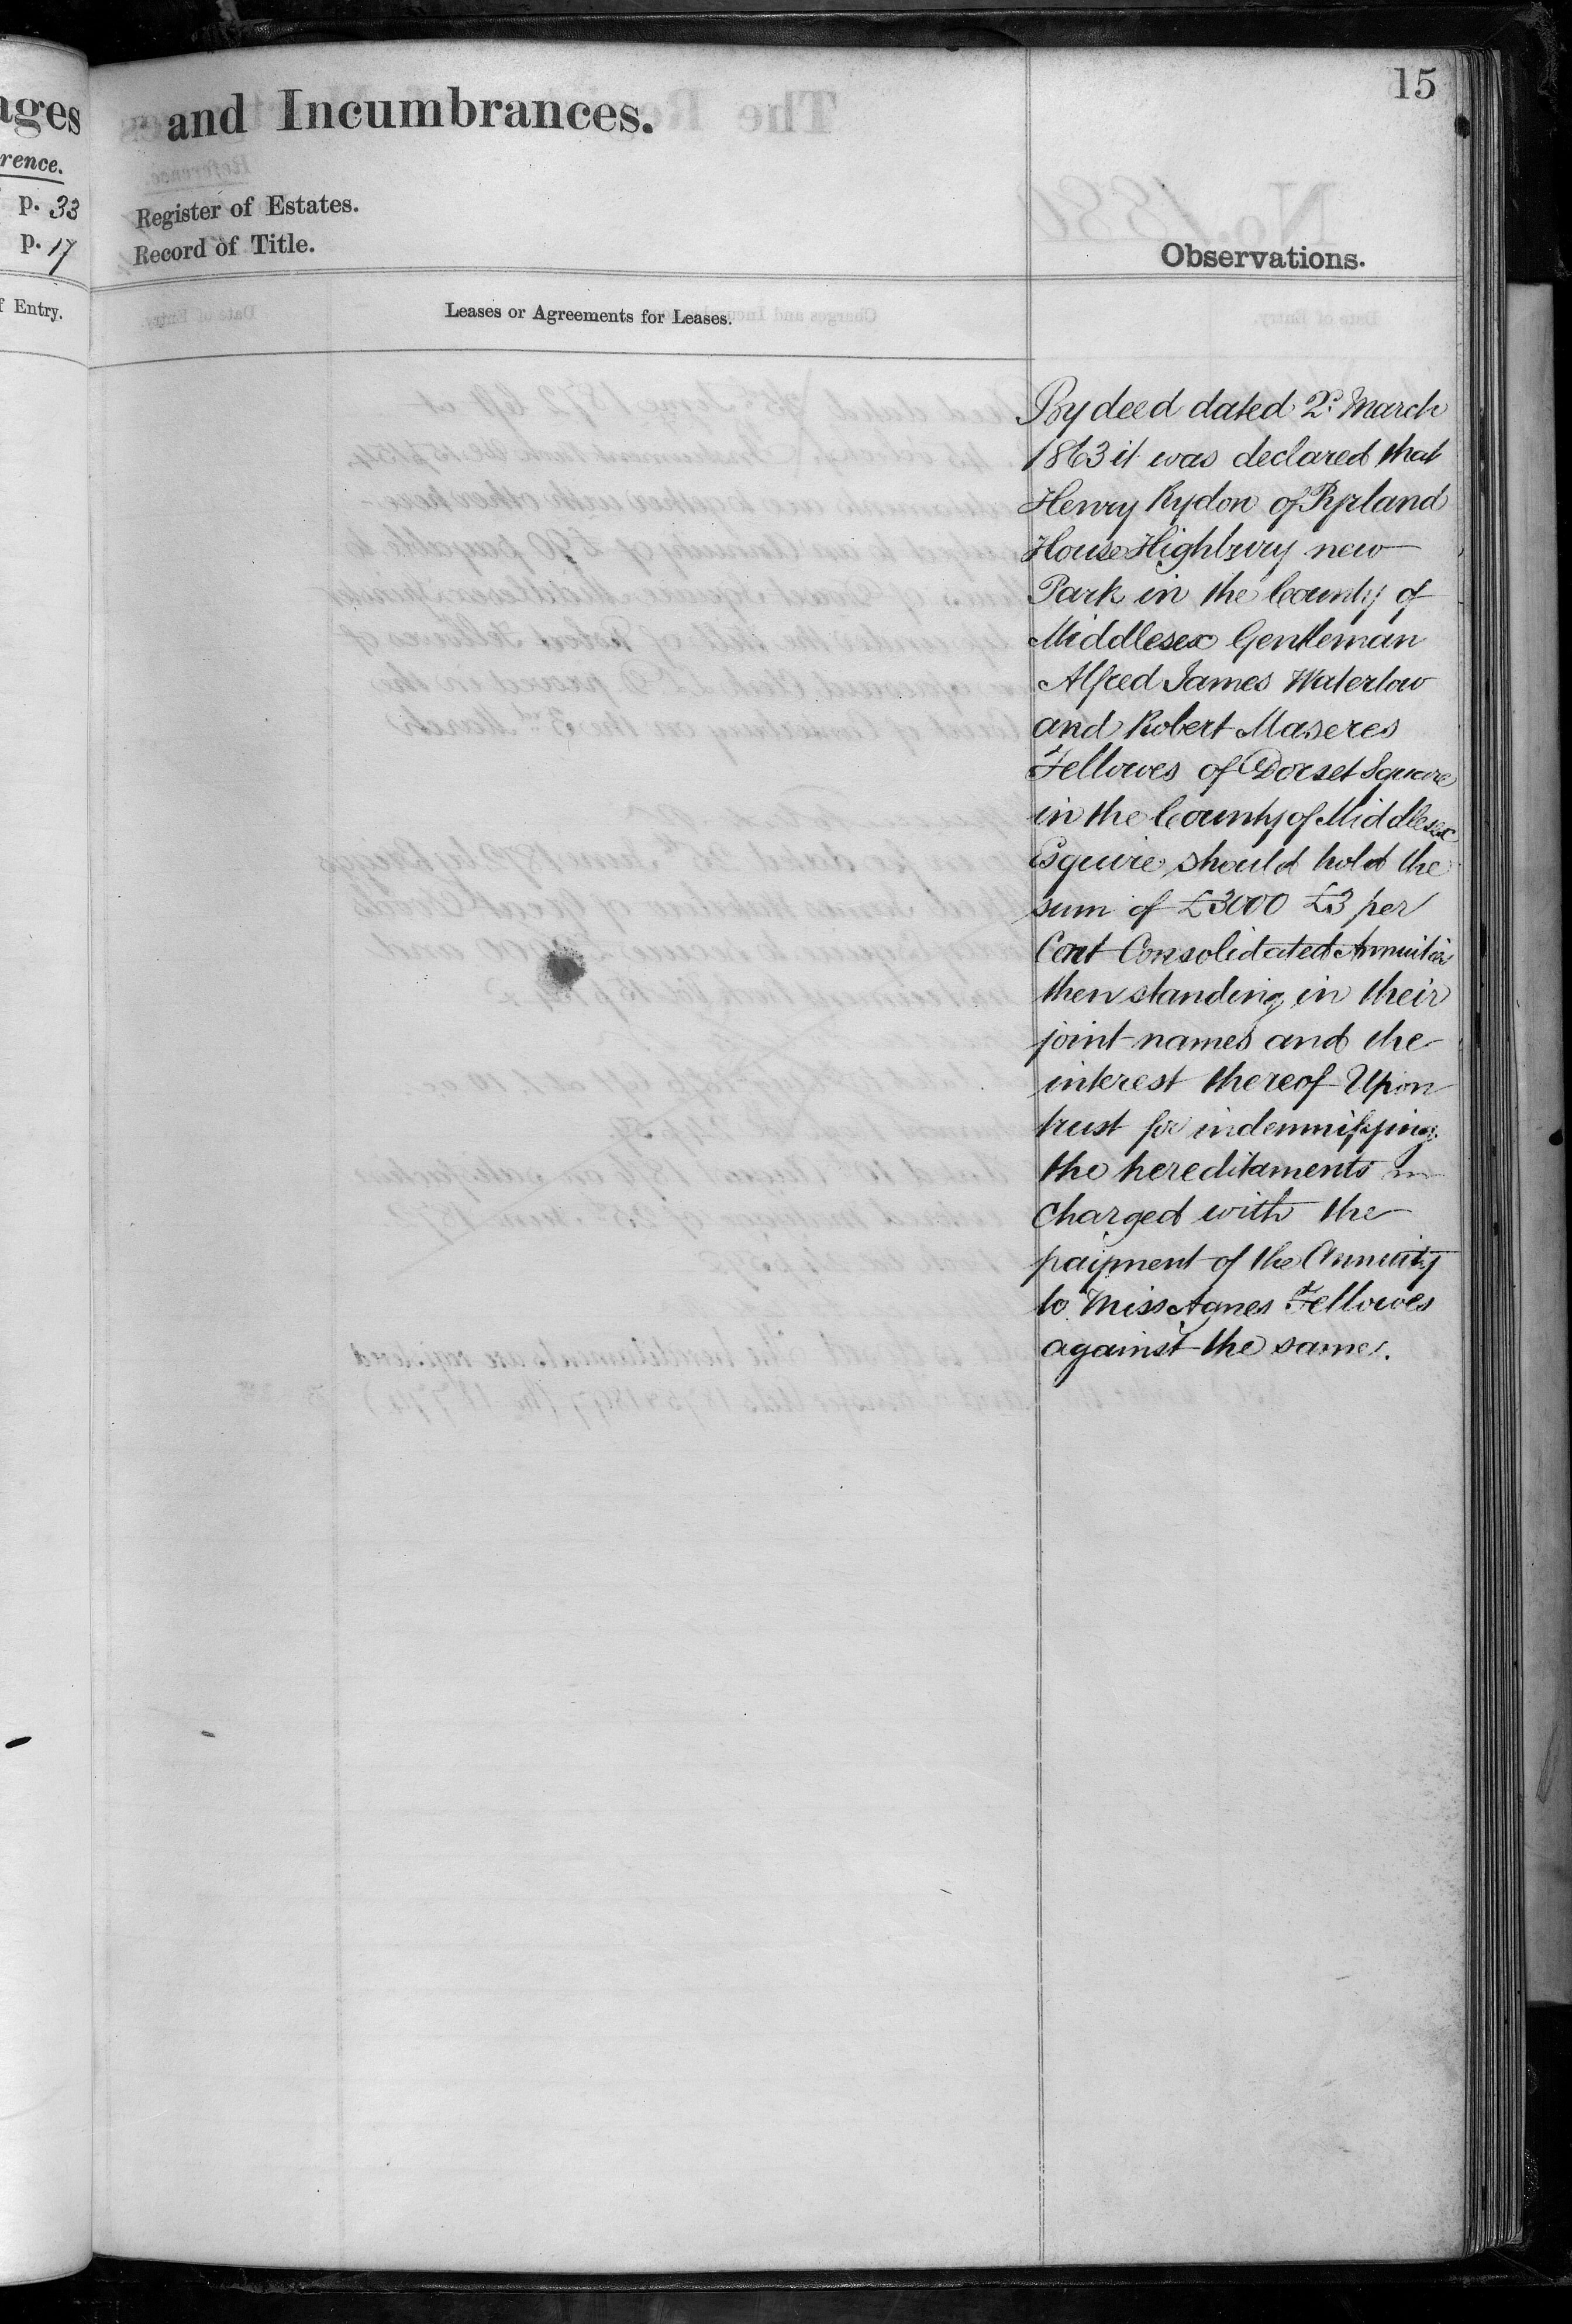 15
ages
and Incumbrances.
rence.
p. 33
Register of Estates.
p. 17
Record of Title.
Observations.
f Entry.
Leases or Agreements for Leases.
By deed dated 2d March
1863 it was declared that
Henry Rydon of Pyrland
House Highbury new
Park in the County of
Middlesex Gentleman
Alfred James Waterlow
and Robert Maseres
Fellowes of Dorset Square
in the County of Middlesex
Esquire should hold the
sum of £3000 £3 per
Cent Consolidated Annuities
then standing in their
joint names and the
interest thereof Upon
trust for indemnifying
the hereditaments
charged with the
payment of the Annuity
to Miss Agnes Fellowes
against the same.